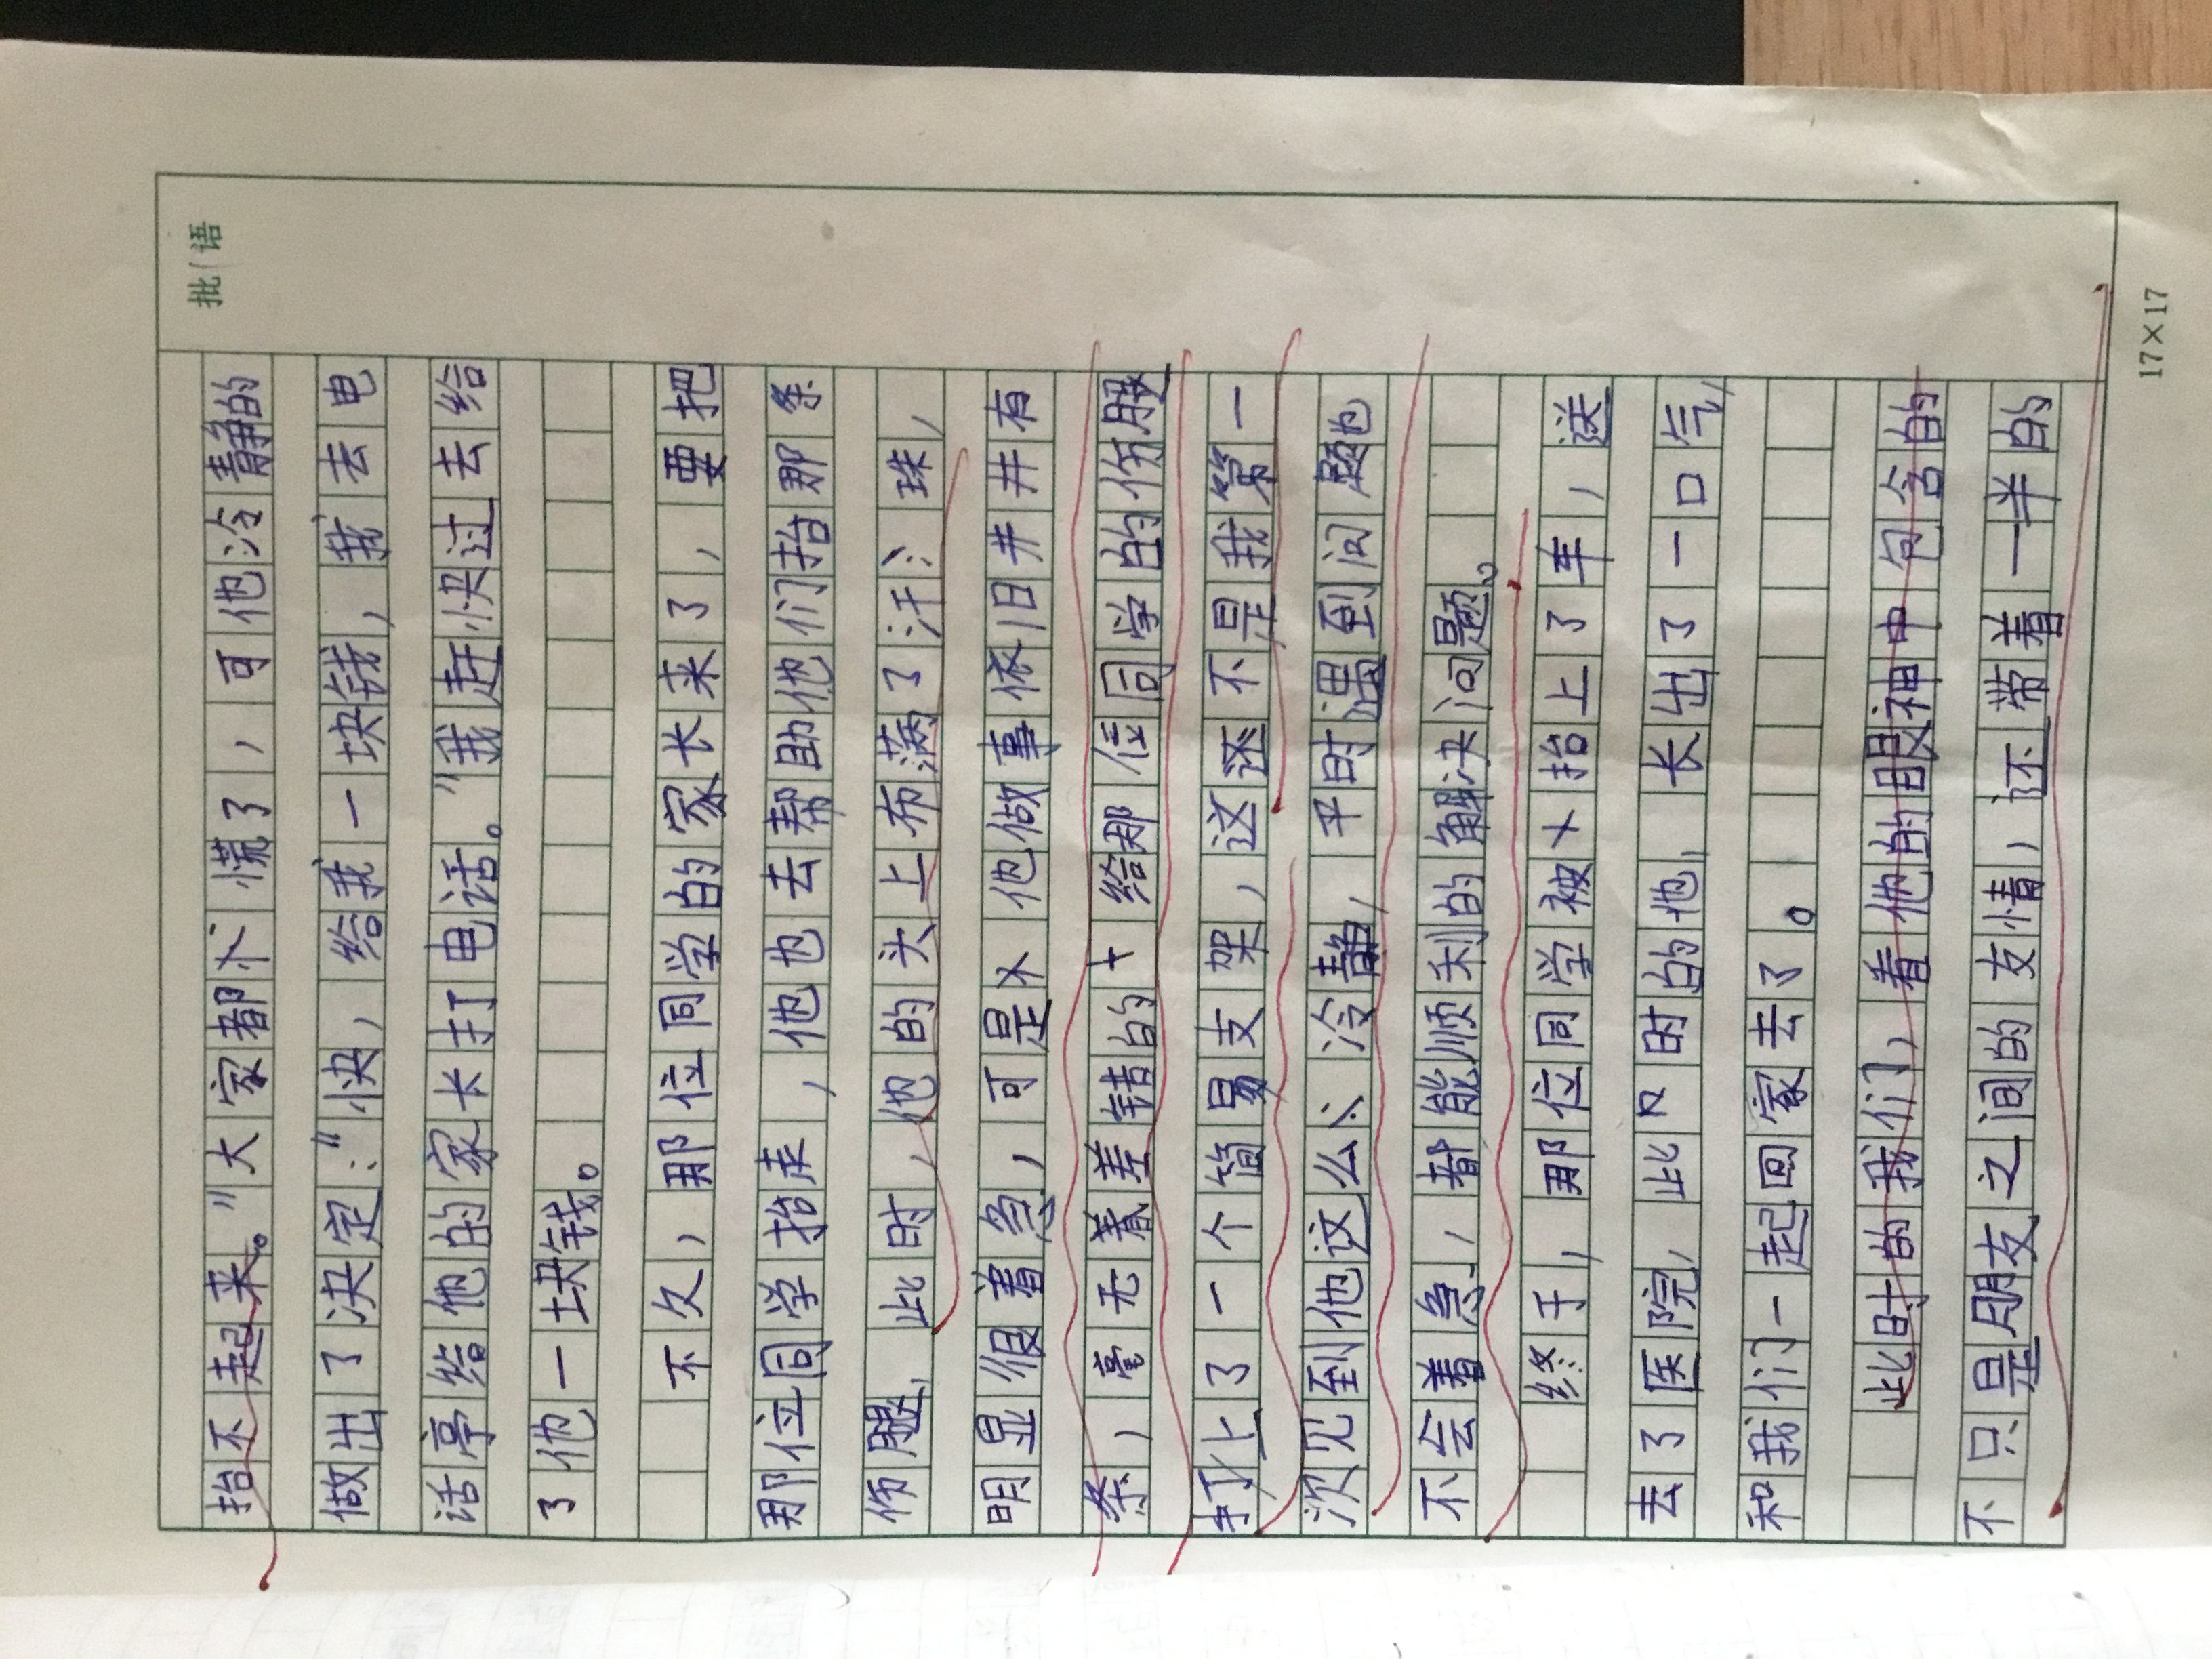 批语
抬不起来。"大家都慌了，可他冷静的
做出了决定："快，给我一块钱，我去电
话亭给他的家长打电话。"我赶快过去给
了他一块钱。
不久，那位同学的家长来了，要把
那位同学抬走，他也去帮助他们抬那条
伤腿，此时，他的头上布满了汗珠，
明显很着急，可是他做事依旧井井有
条，毫无差错的给那位同学的伤腿
打上了一个简易支架，这还不是我第一
次见到他这么冷静，平时遇到问题也
不会着急，都能顺利的解决问题。
终于，那位同学被抬上了车，送
去了医院，此时的他，长出了一口气，
和我们一起回家去了。
此时的我们，看他的眼神中包含的
不只是朋友之间的友情，还带着一半的
17×17